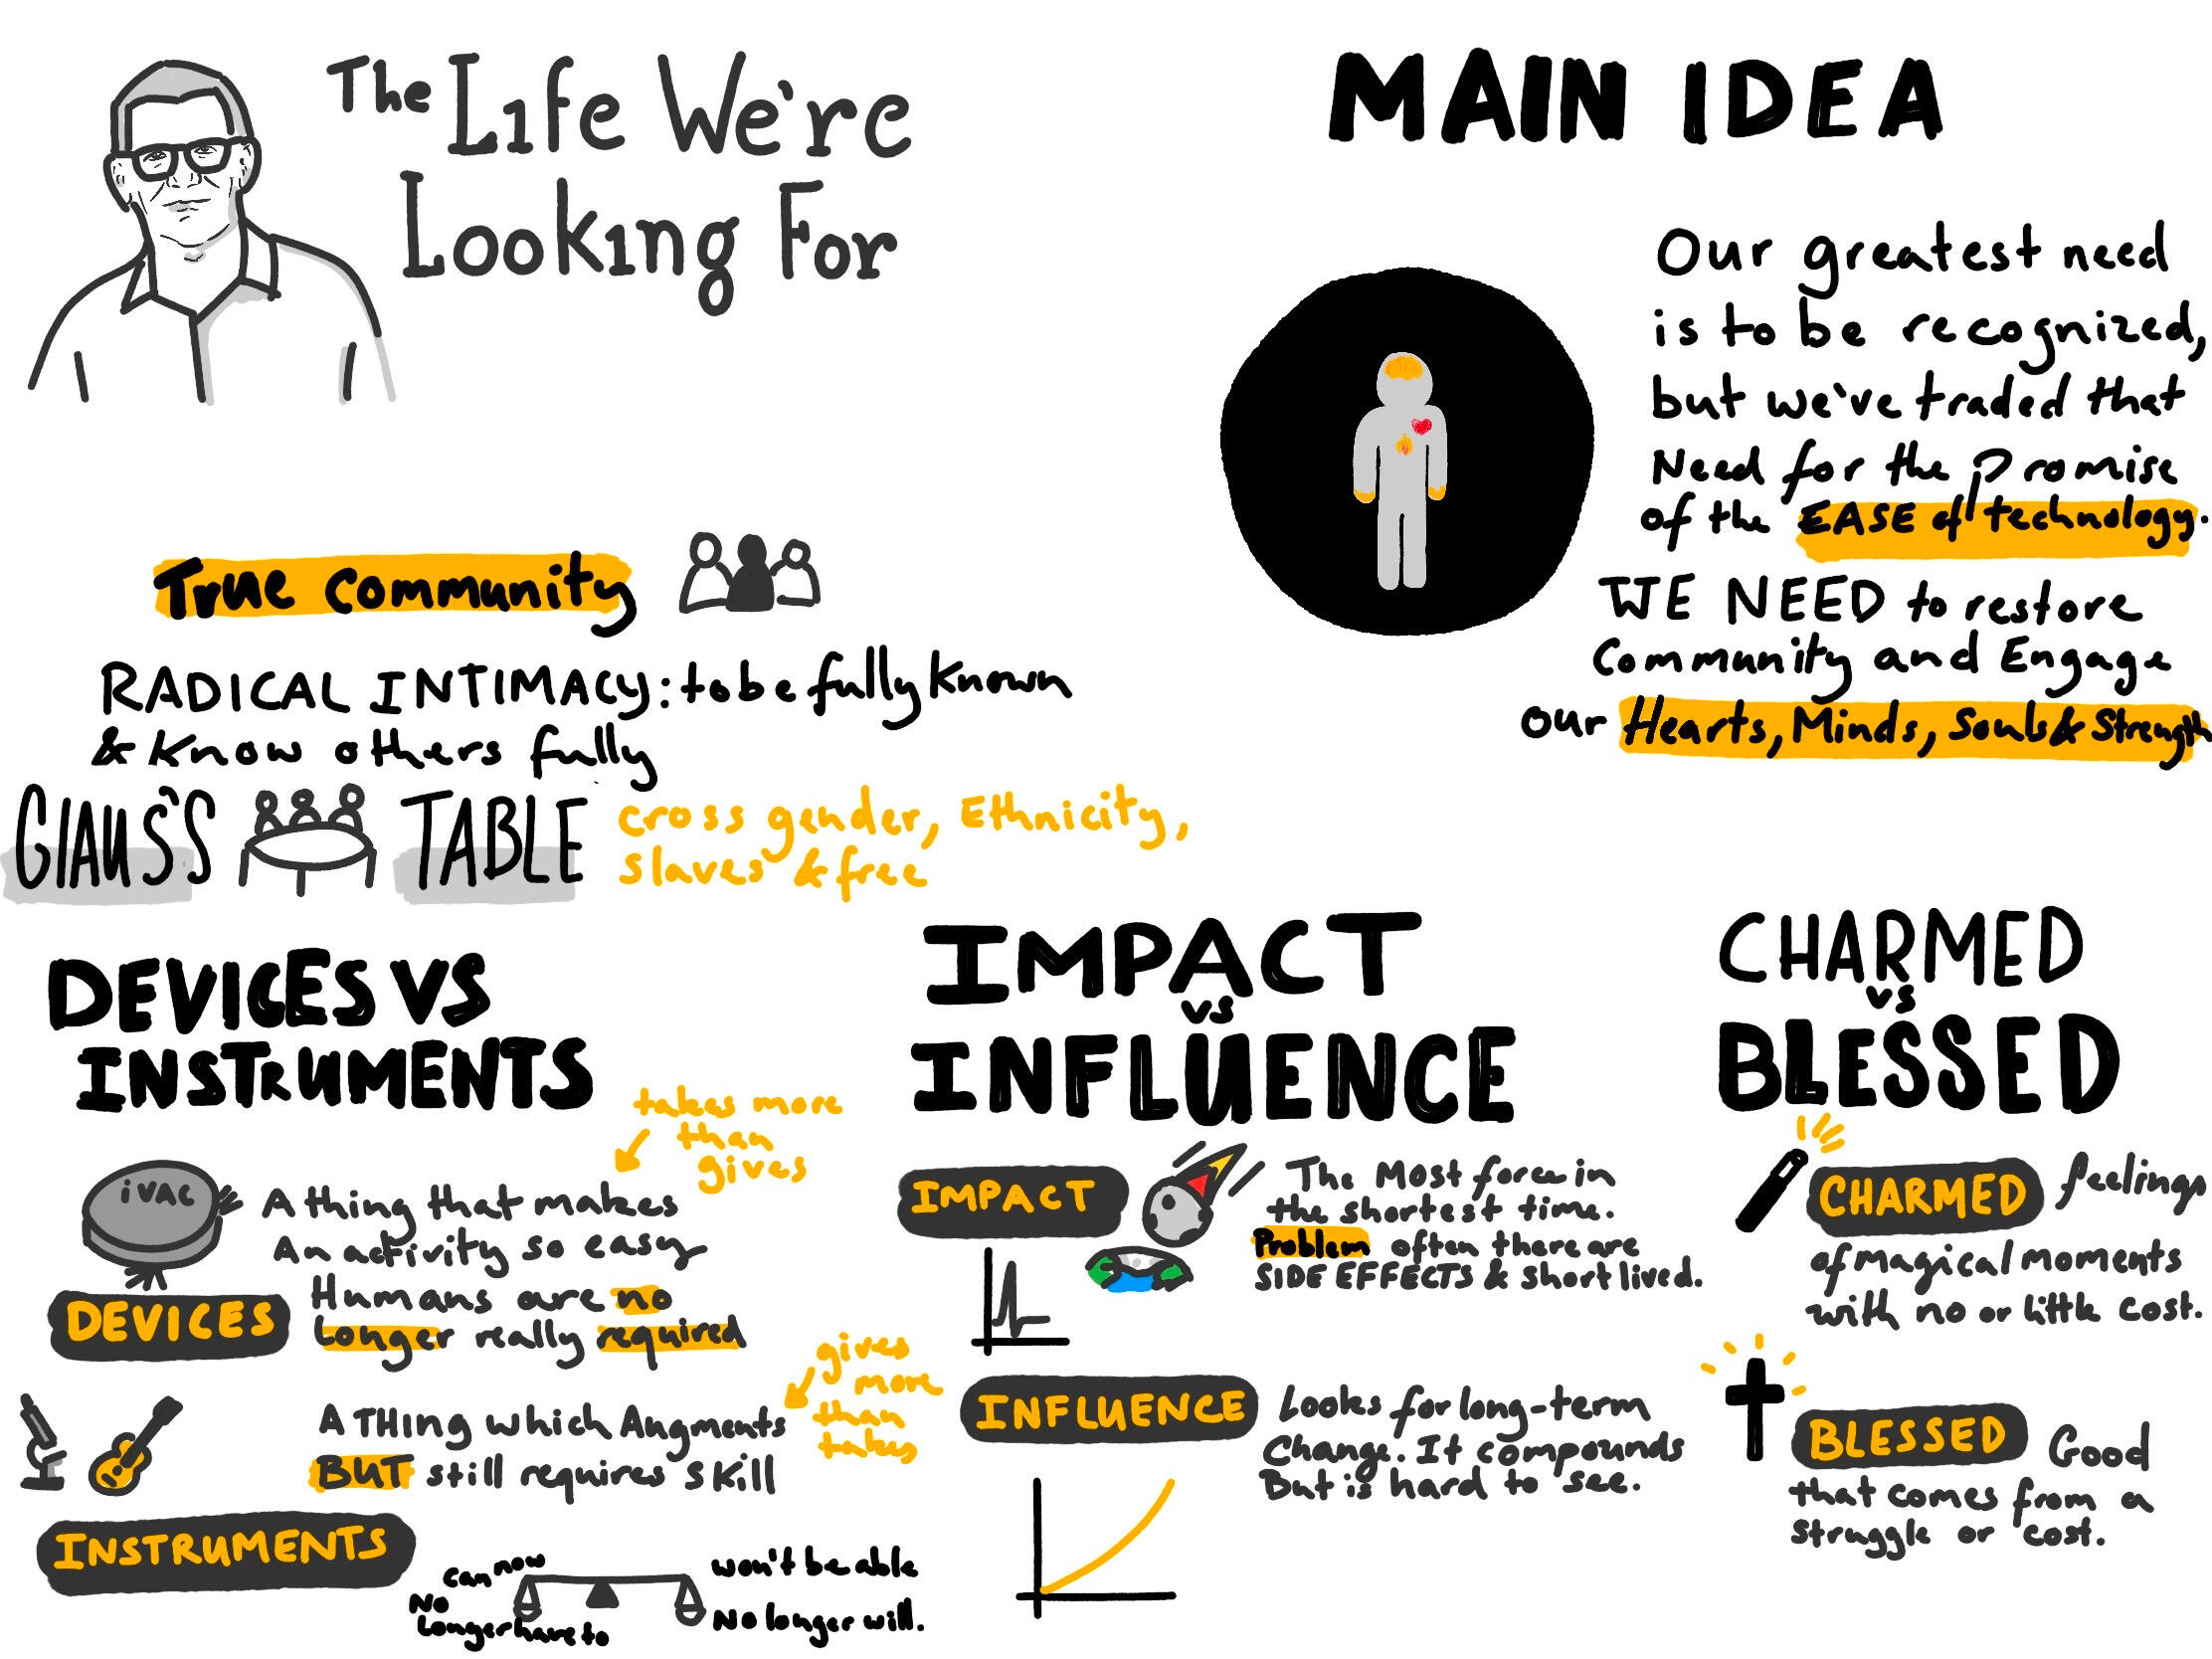 The Life We're
Looking For
MAIN IDEA
Our greatest need
is to be recognized,
but we've traded that
Need for the promise
of the EASE of technology.
WE NEED to restore
Community and Engage
our Hearts, Minds, Souls & Strength
True Community
RADICAL INTIMACY: to be fully known
& Know others fully
GIAUS'S TABLE
cross gender, Ethnicity,
slaves & free
DEVICES VS
INSTRUMENTS
takes more
than
gives
iVAC
A thing that makes
An activity so easy
Humans are no
longer really required
DEVICES
gives
more
than
takes
A THing which Augments
BUT still requires skill
INSTRUMENTS
can now
No
Longer have to
won't be able
No longer will.
IMPACT
vs
INFLUENCE
IMPACT
The Most force in
the shortest time.
Problem often there are
SIDE EFFECTS & short lived.
INFLUENCE
Looks for long-term
Change. It compounds
But is hard to see.
CHARMED
vs
BLESSED
CHARMED feelings
of magical moments
with no or little cost.
BLESSED Good
that comes from a
struggle or cost.